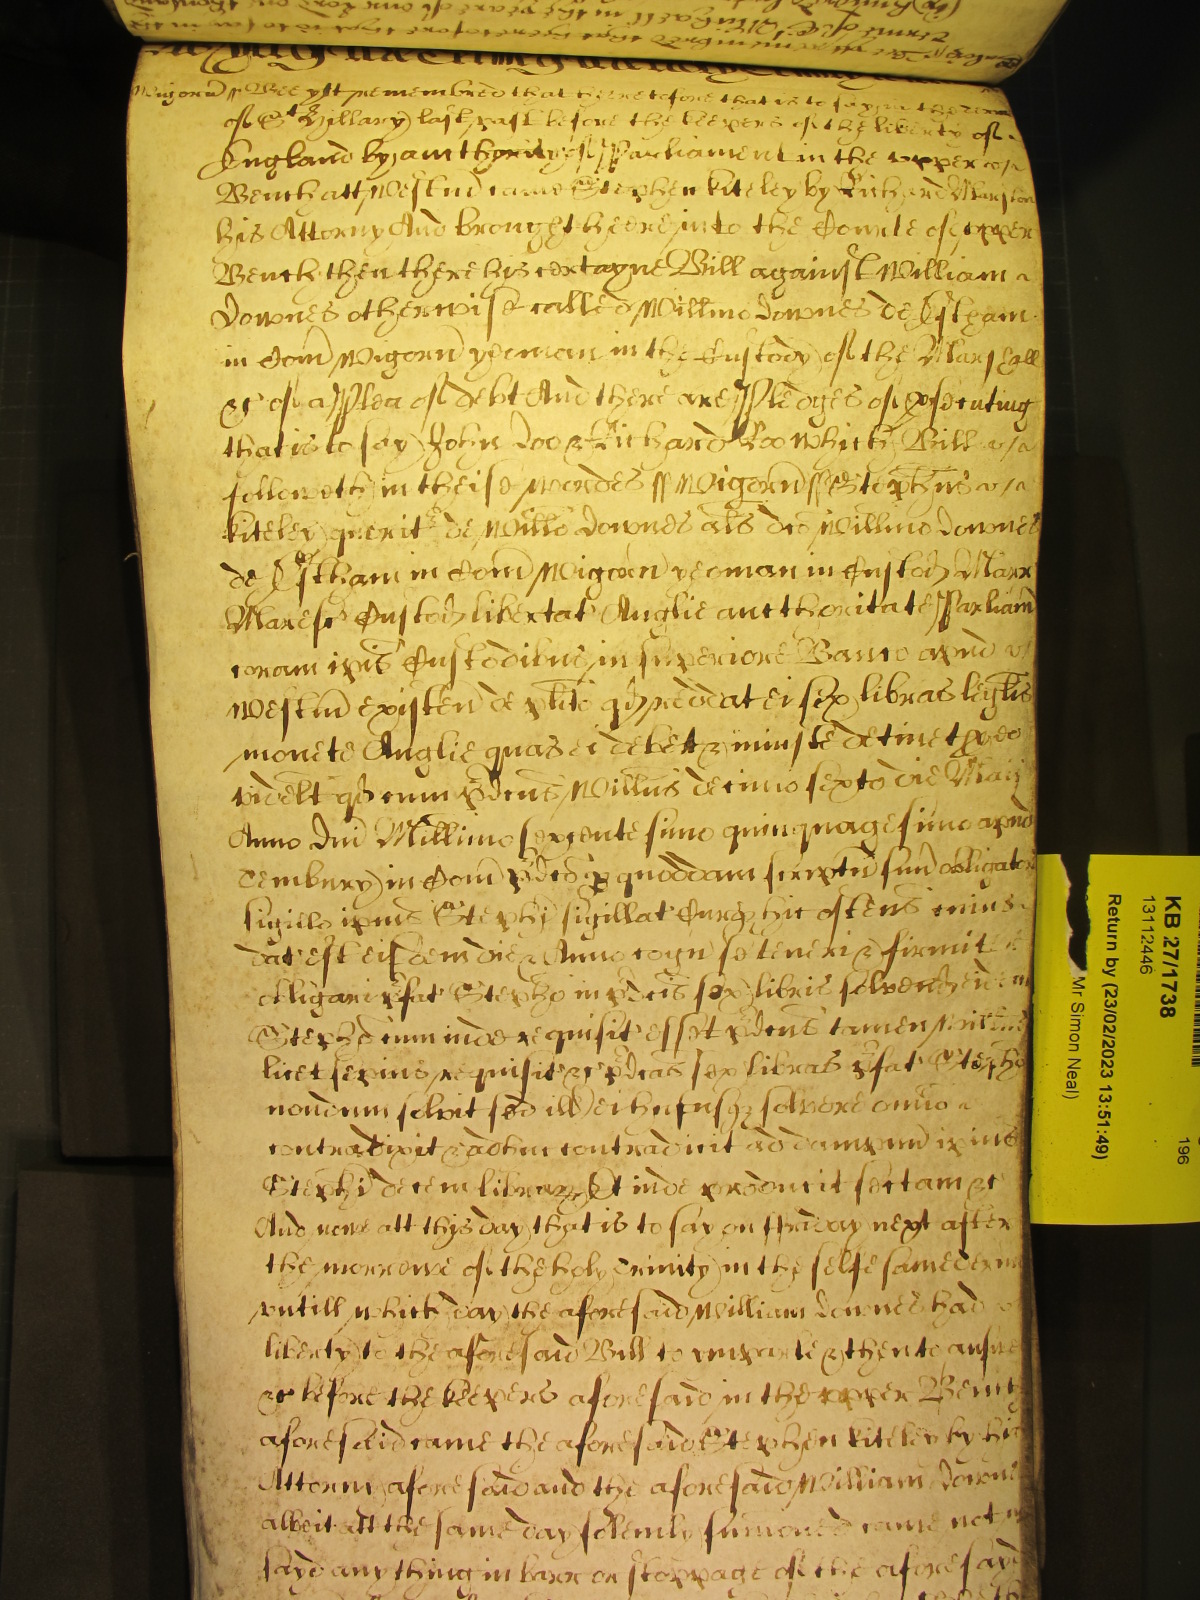 Wigorn ss Bee ytt remembred that heretofore that is to say in the terme
of St Hillary last past before the keepers of the liberty of
England by authority of Parliament in the upper
Bench att Westm came Stephen Kiteley by Richard Marston
his Attorny And brought heere into the Courte of upper
Bench then there his certayne Bill against William
Downes otherwise called Willmo Downes de Estham
in Com Wigorn yeoman in the Custody of the Marshall
&c of a Plea of debt And there are Pledges of prosecuting
that is to say John Doo & Richard Roo which Bill
followeth in theise wordes ss Wigorn ss Stephus
Kiteley querit de Willo Downes als dco Willmo Downes
de Estham in Com Wigorn yeoman in Custod Marr
Maresc Custod libertat Anglie aucthoritate Parliam
coram ipis Custodibus in superiore Banco apud
Westm existen de plito qd reddat ei sex libras leglis
monete Anglie quas ei debet & iniuste detinet p eo
videlt qd cum pdcus Willus decimo sexto die Maij
Anno Dni Millimo sexcentesimo quinquagesimo apud
Tembury in Com pdco p quoddam scriptu suu obligator
sigillo ipius Stephi sigillat Curq hic ostens cuius
dat est eisdem die & Anno cogn se teneri & firmit
obligari pfat Stepho in pdcis sex libris solvend eidem
Stepho cum inde requisit esset pdcus tamen Willus
licet sepius requisit &c pdcas sex libras pfat Stepho
nondum solvit sed ill ei hucusq solvere omnio
contradixit & adhuc contradicit ad dampnum ipius
Stephi decem librar Et inde producit sectam &c
And nowe att this day that is to say on ffriday next after
the morrowe of the holy Trinity in the selfe same terme
untill which day the aforesaid William Downes had
liberty to the aforesaid Bill to imparle & then to answe
&c before the keepers aforesaid in the upper Bench
aforesaid came the aforesaid Stephen Kiteley by his
Attorny aforesaid and the aforesaid William Downes
albeit att the same day solemly sumoned came not
sayd any thing in barr or stoppage of the aforesayd
KB 27/1738
13112446
196
Return by (23/02/2023 13:51:49)
Mr Simon Neal)